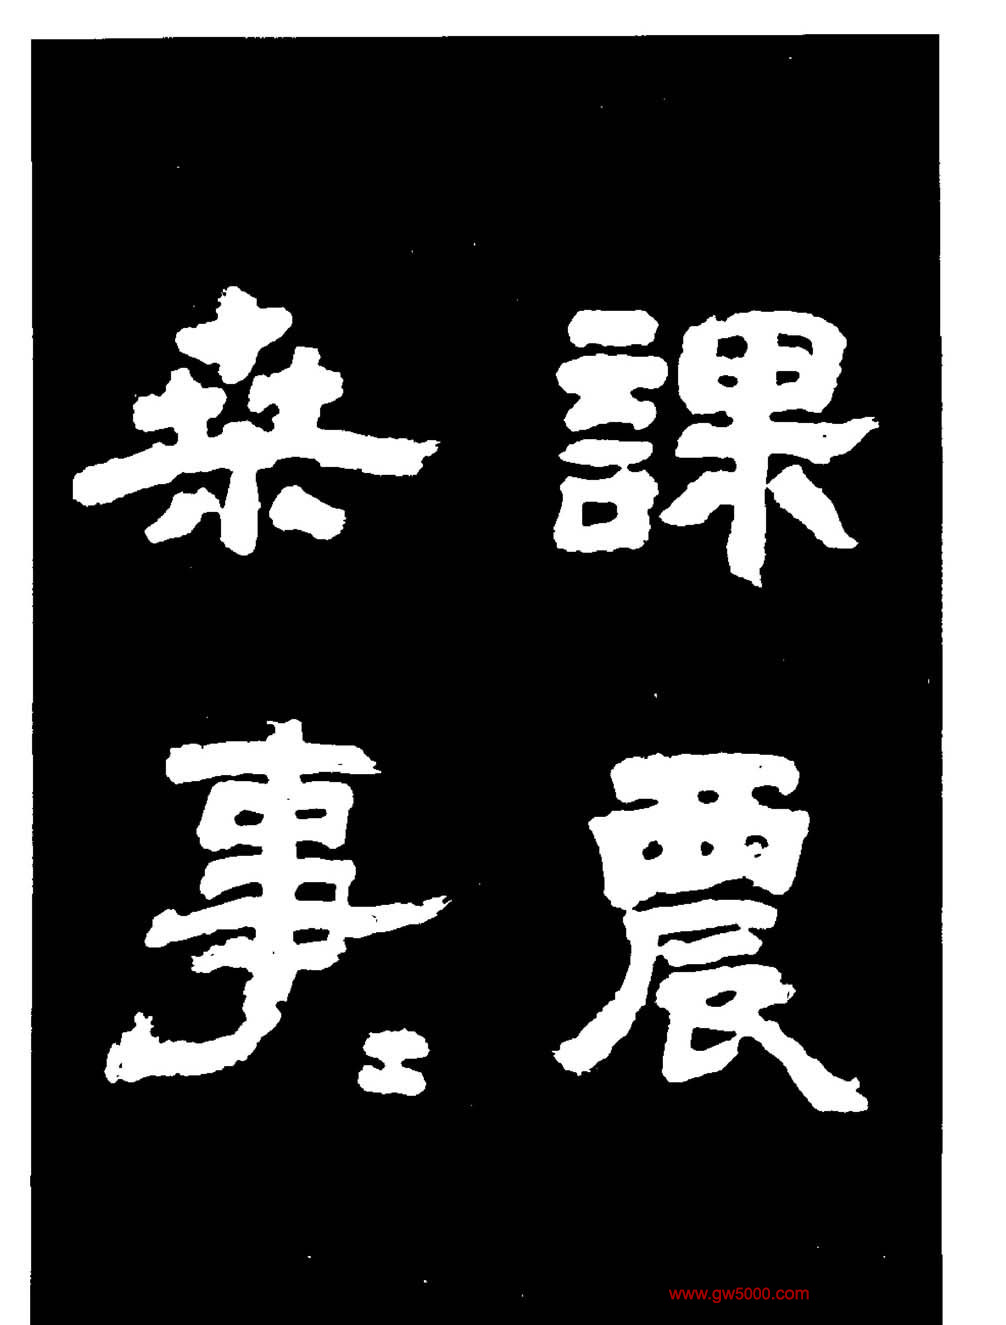 課農
桒事二
www.gw5000.com